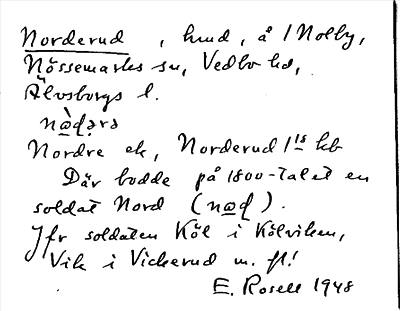 Norderud, hmd, å 1 Nolby,
Nössemarks sn, Vedbo hd,
Älvsborgs l.
nὼḍərə
Nordre ek, Norderud 1 ls kb
Där bodde på 1800-talet en
soldat Nord (nωḍ).
Jfr soldaten Köl i Kölviken,
Vik i Vickerud m. fl!
E. Rosell 1948